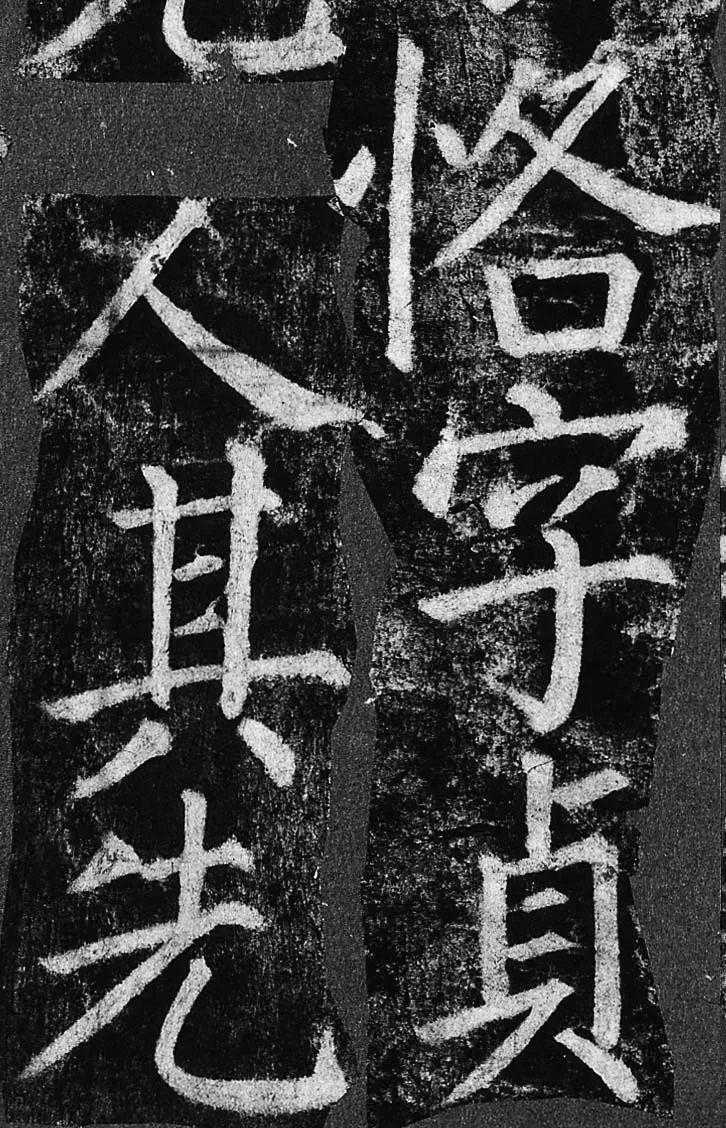 恪字貞
人其先